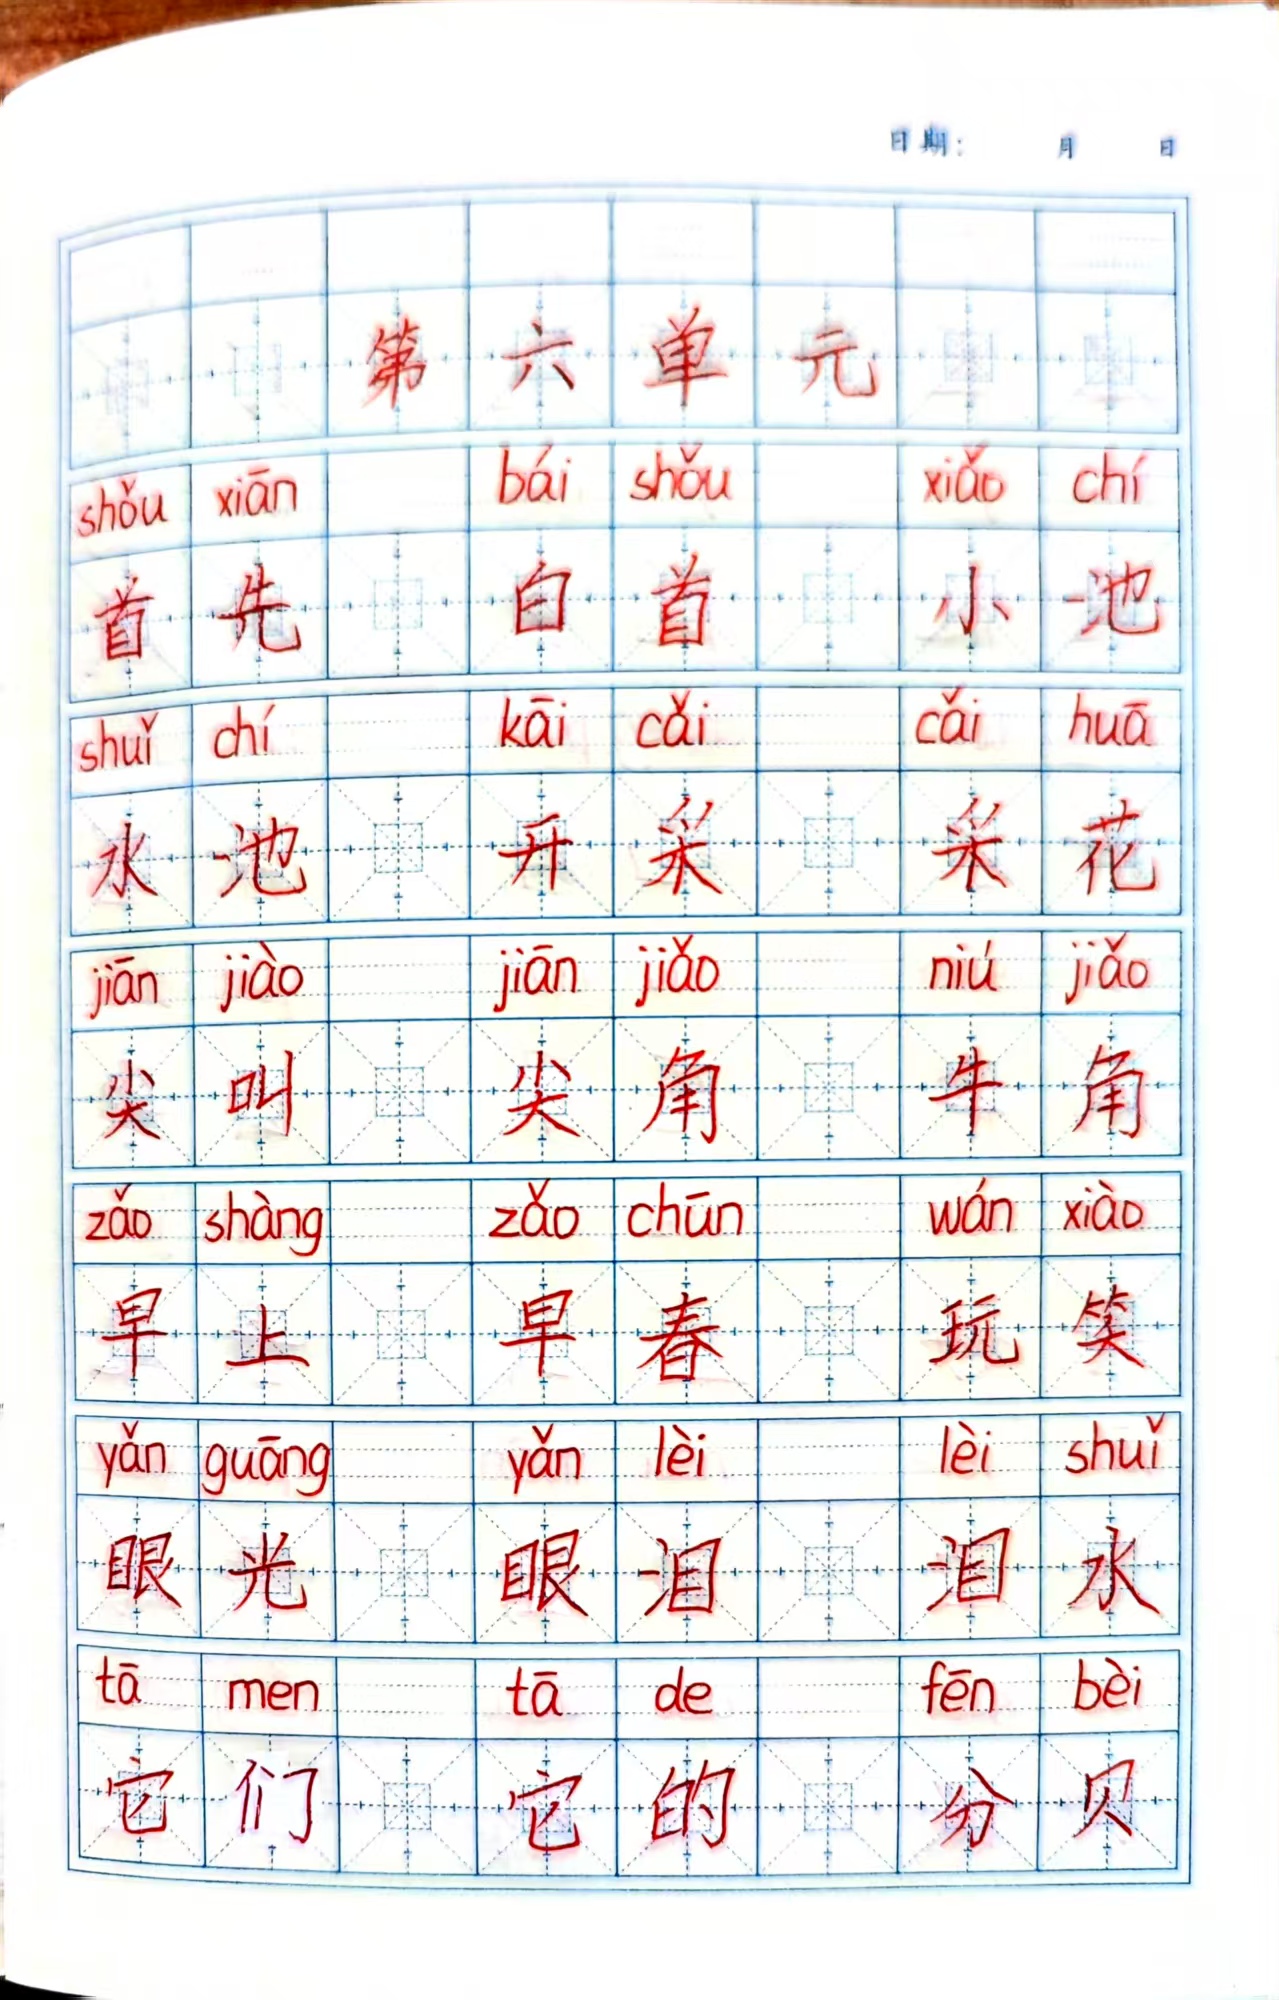 日期： 月 日
第六单元
shǒu xiān bái shǒu xiǎo chí
首先 白首 小池
shuǐ chí kāi cǎi cǎi huā
水池 开采 采花
jiān jiào jiān jiǎo niú jiǎo
尖叫 尖角 牛角
zǎo shàng zǎo chūn wán xiào
早上 早春 玩笑
yǎn guāng yǎn lèi lèi shuǐ
眼光 眼泪 泪水
tā men tā de fēn bèi
它们 它的 分贝